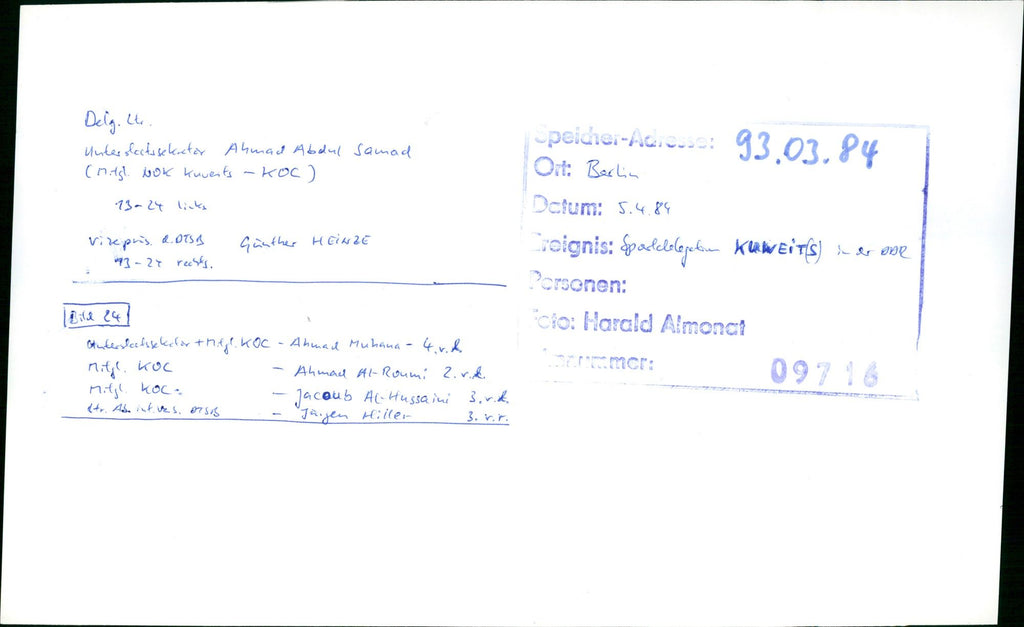 Delg. Ltr.
Unterstaatssekretär Ahmad Abdul Samad
(Mitgl. NOK Kuweits - KOC)
13-24 links
Vizepräs. d. DTSB Günther HEINZE
13-24 rechts.
Bild 24
Unterstaatssekretär + Mitgl. KOC - Ahmad Muhana - 4.v.l.
Mitgl. KOC - Ahmad Al-Roumi 2.v.l.
Mitgl. KOC - Jacoub Al-Hussaini 3.v.l.
Ltr. Abt. int. DTSB - Jürgen Hiller 3.v.r.
Speicher-Adresse: 93.03.84
Ort: Berlin
Datum: 5.4.84
Ereignis: Sportdelegation KUWEIT(S) in der DDR
Personen:
Foto: Harald Almonat
09716